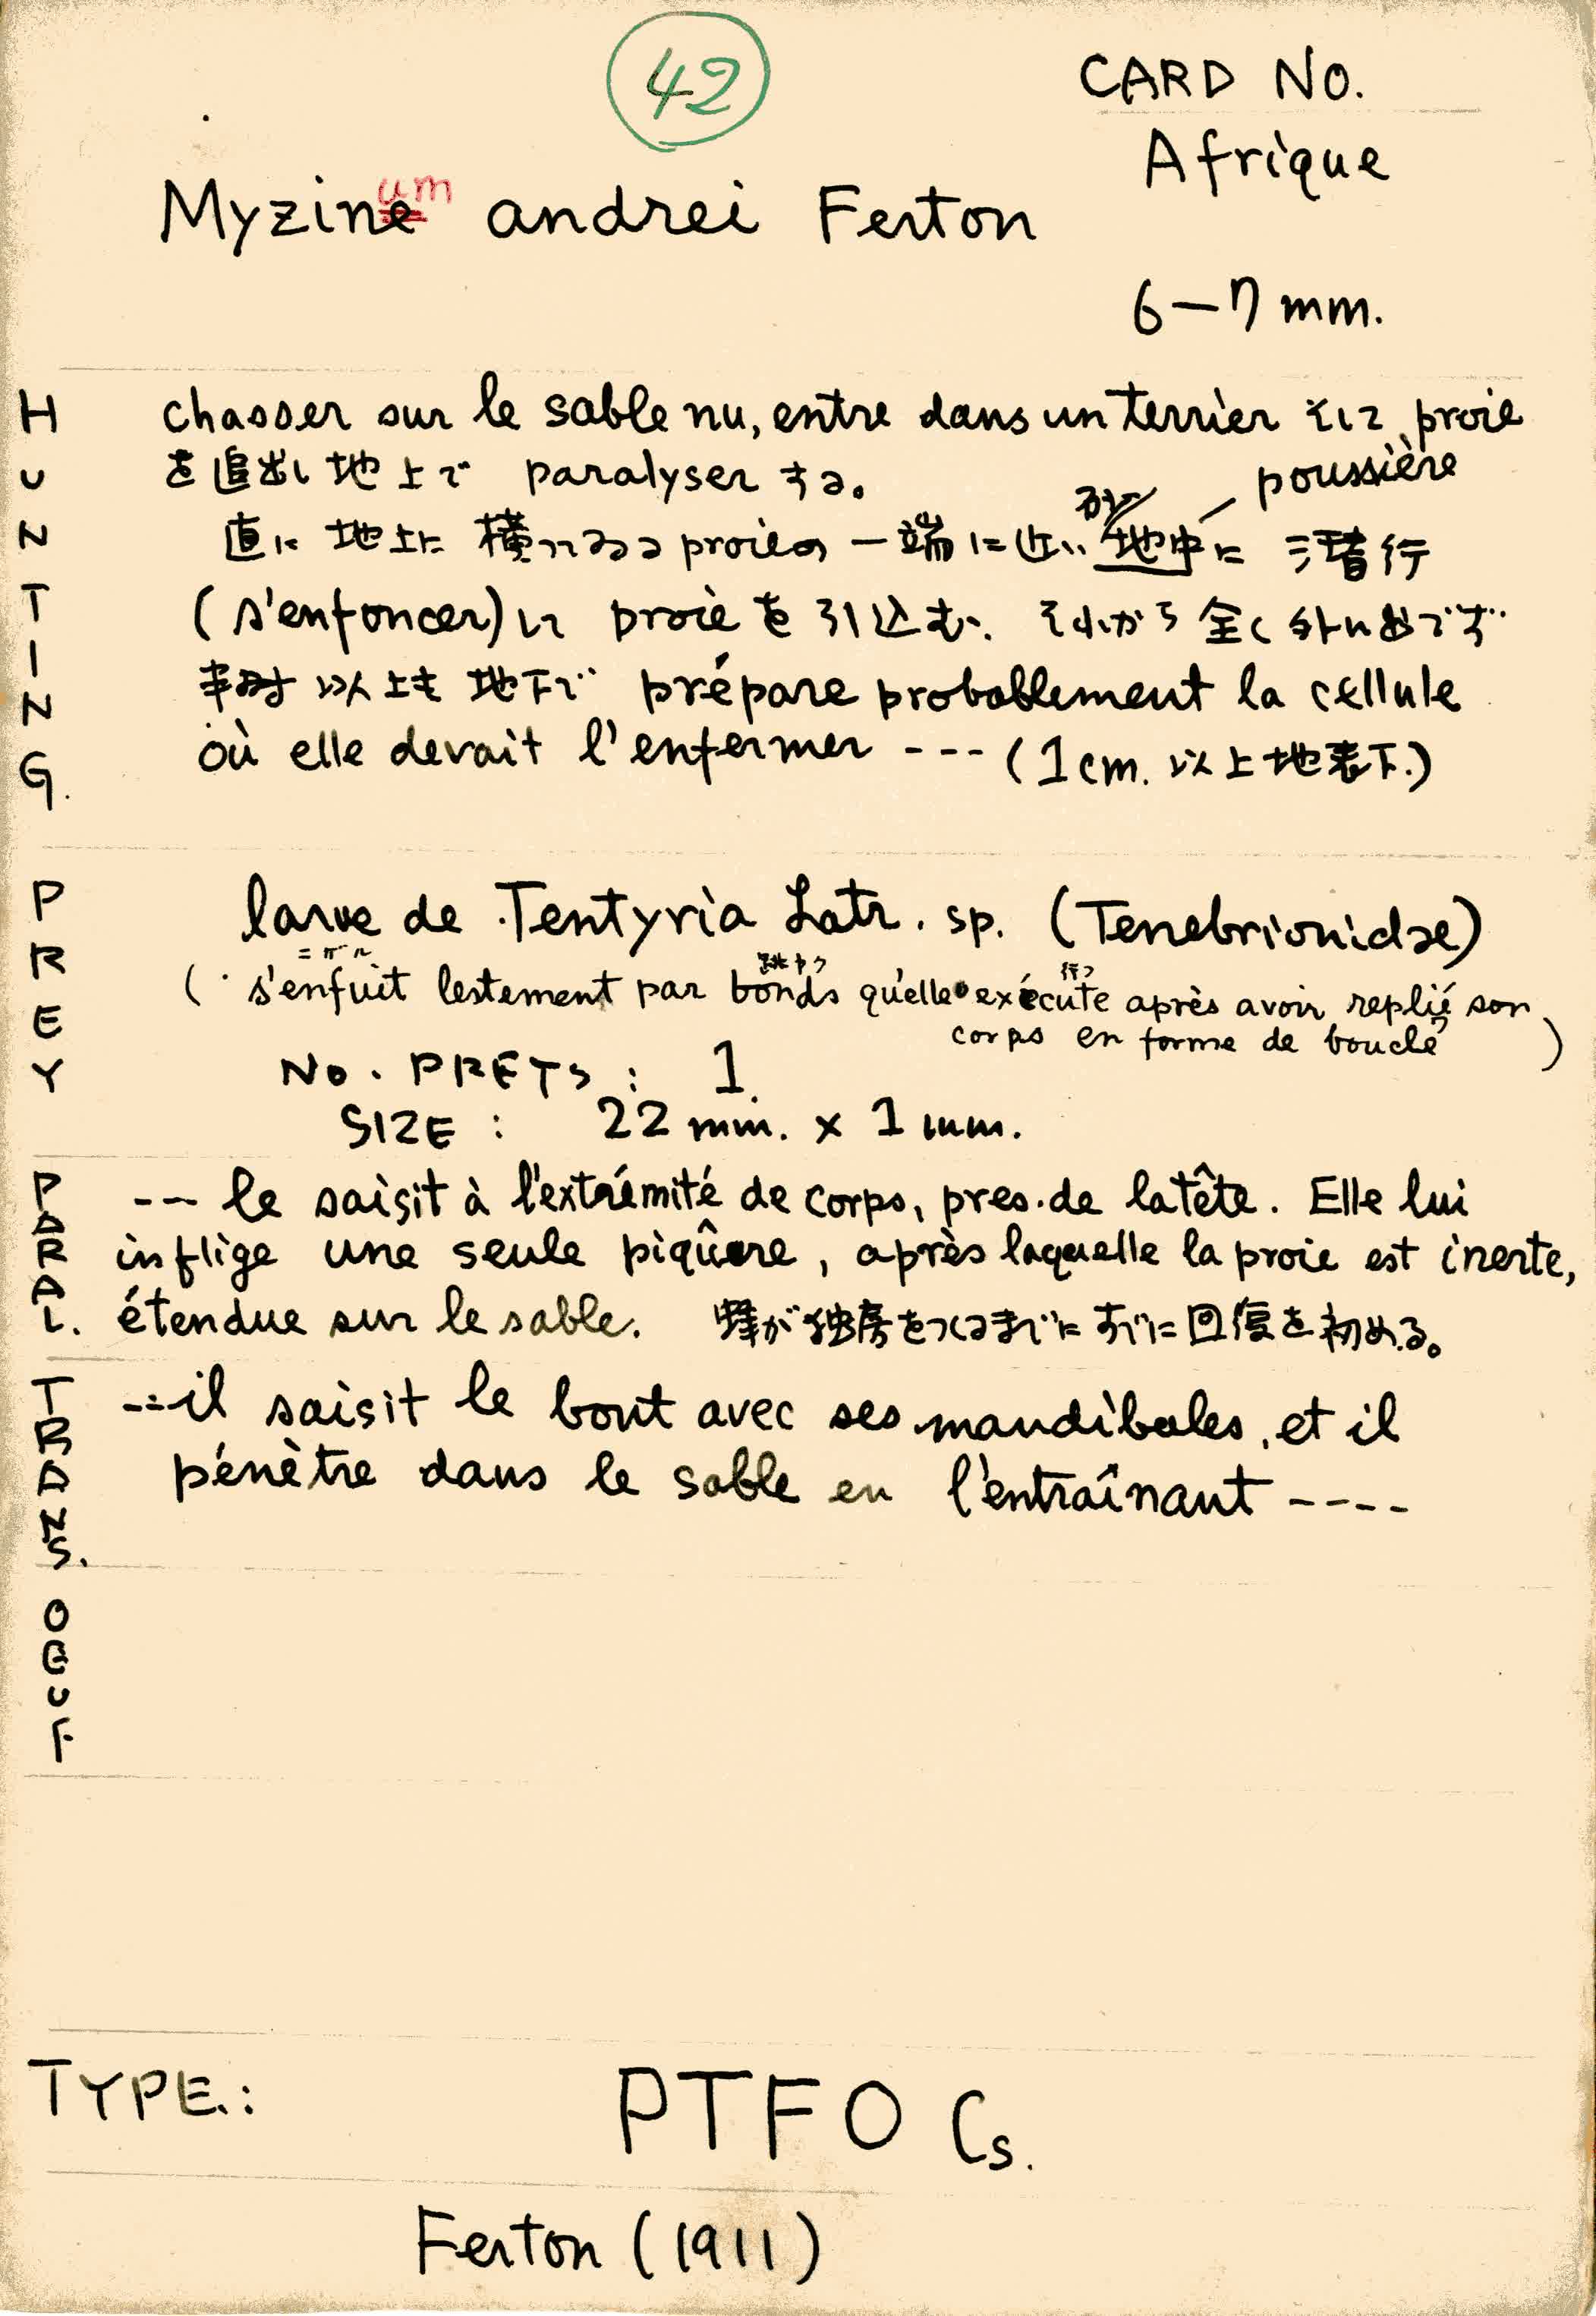 42
CARD NO.
Afrique
Myzine um andrei Ferton
6—7 mm.
HUNTING.
chasser sur le sable nu, entre dans un terrier そして proie
を追出し地上で paralyser する。
poussière
直に 地上に 横ハる proieの一端に近い 地中に 潜行
(s'enfoncer)して proie を引込む、それから全く外に出でず
半時以上も地下で prépare probablement la cellule
où elle devait l'enfermer --- (1cm. 以上地表下.)
PREY
larve de Tentyria Latr. sp. (Tenebrionidae)
ニゲル 跳ヤク 行フ
( s'enfuit lestement par bonds qu'elle exécute après avoir replié son
corps en forme de boucle )
NO. PREYS : 1
SIZE : 22 mm. x 1 mm.
PARAL.
-- le saisit à l'extrémité de corps, pres de la tête. Elle lui
inflige une seule piqûre, après laquelle la proie est inerte,
étendue sur le sable. 蜂が独房をつくるまでにすでに回復を初める。
TRANS.
--il saisit le bout avec ses mandibules, et il
pénètre dans le sable en l'entraînant ----
OEUF
TYPE.: PTFO Cs.
Ferton (1911)